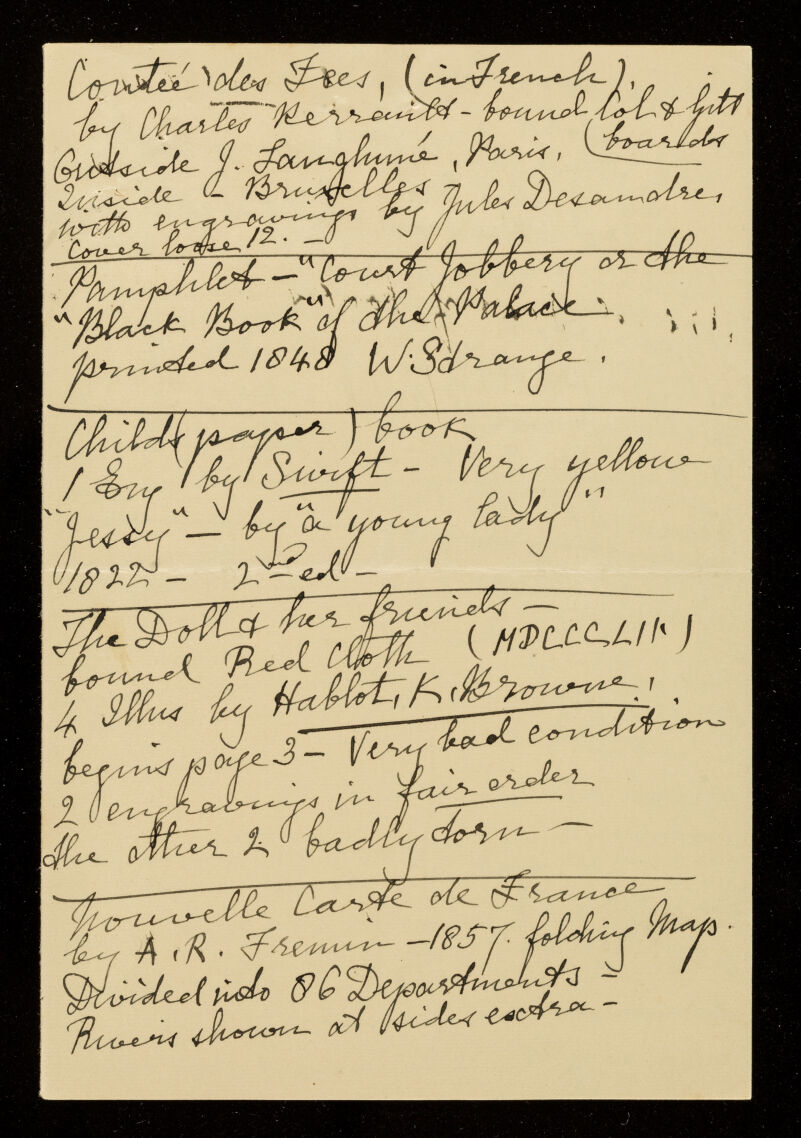 Contée des Fees, (in French),
by Charles Perrault - bound Col & Gilt
Outside J. Langlumé, Paris, (boards
Inside - Bruxelles
with engravings by Jules Desandre,
Cover loose 12. -
Pamphlet - "Court Jobbery or the
"Black Book" of the Palace.
printed 1848 W. Strange.
Childs (paper) book
1 Eng by Swift - Very yellow
"Jessy" - by "a young lady"
1822 - 2nd ed -
The Doll & her friends -
bound Red Cloth (MDCCCLII)
4 Illus by Hablot. K. Browne,
begins page 3 - Very bad condition
2 engravings in fair order
the other 2 badly torn -
Nouvelle Carte de France
by A. R. Fremin - 1857. folding Map.
Divided into 86 Departments -
Rivers shown at sides extra -